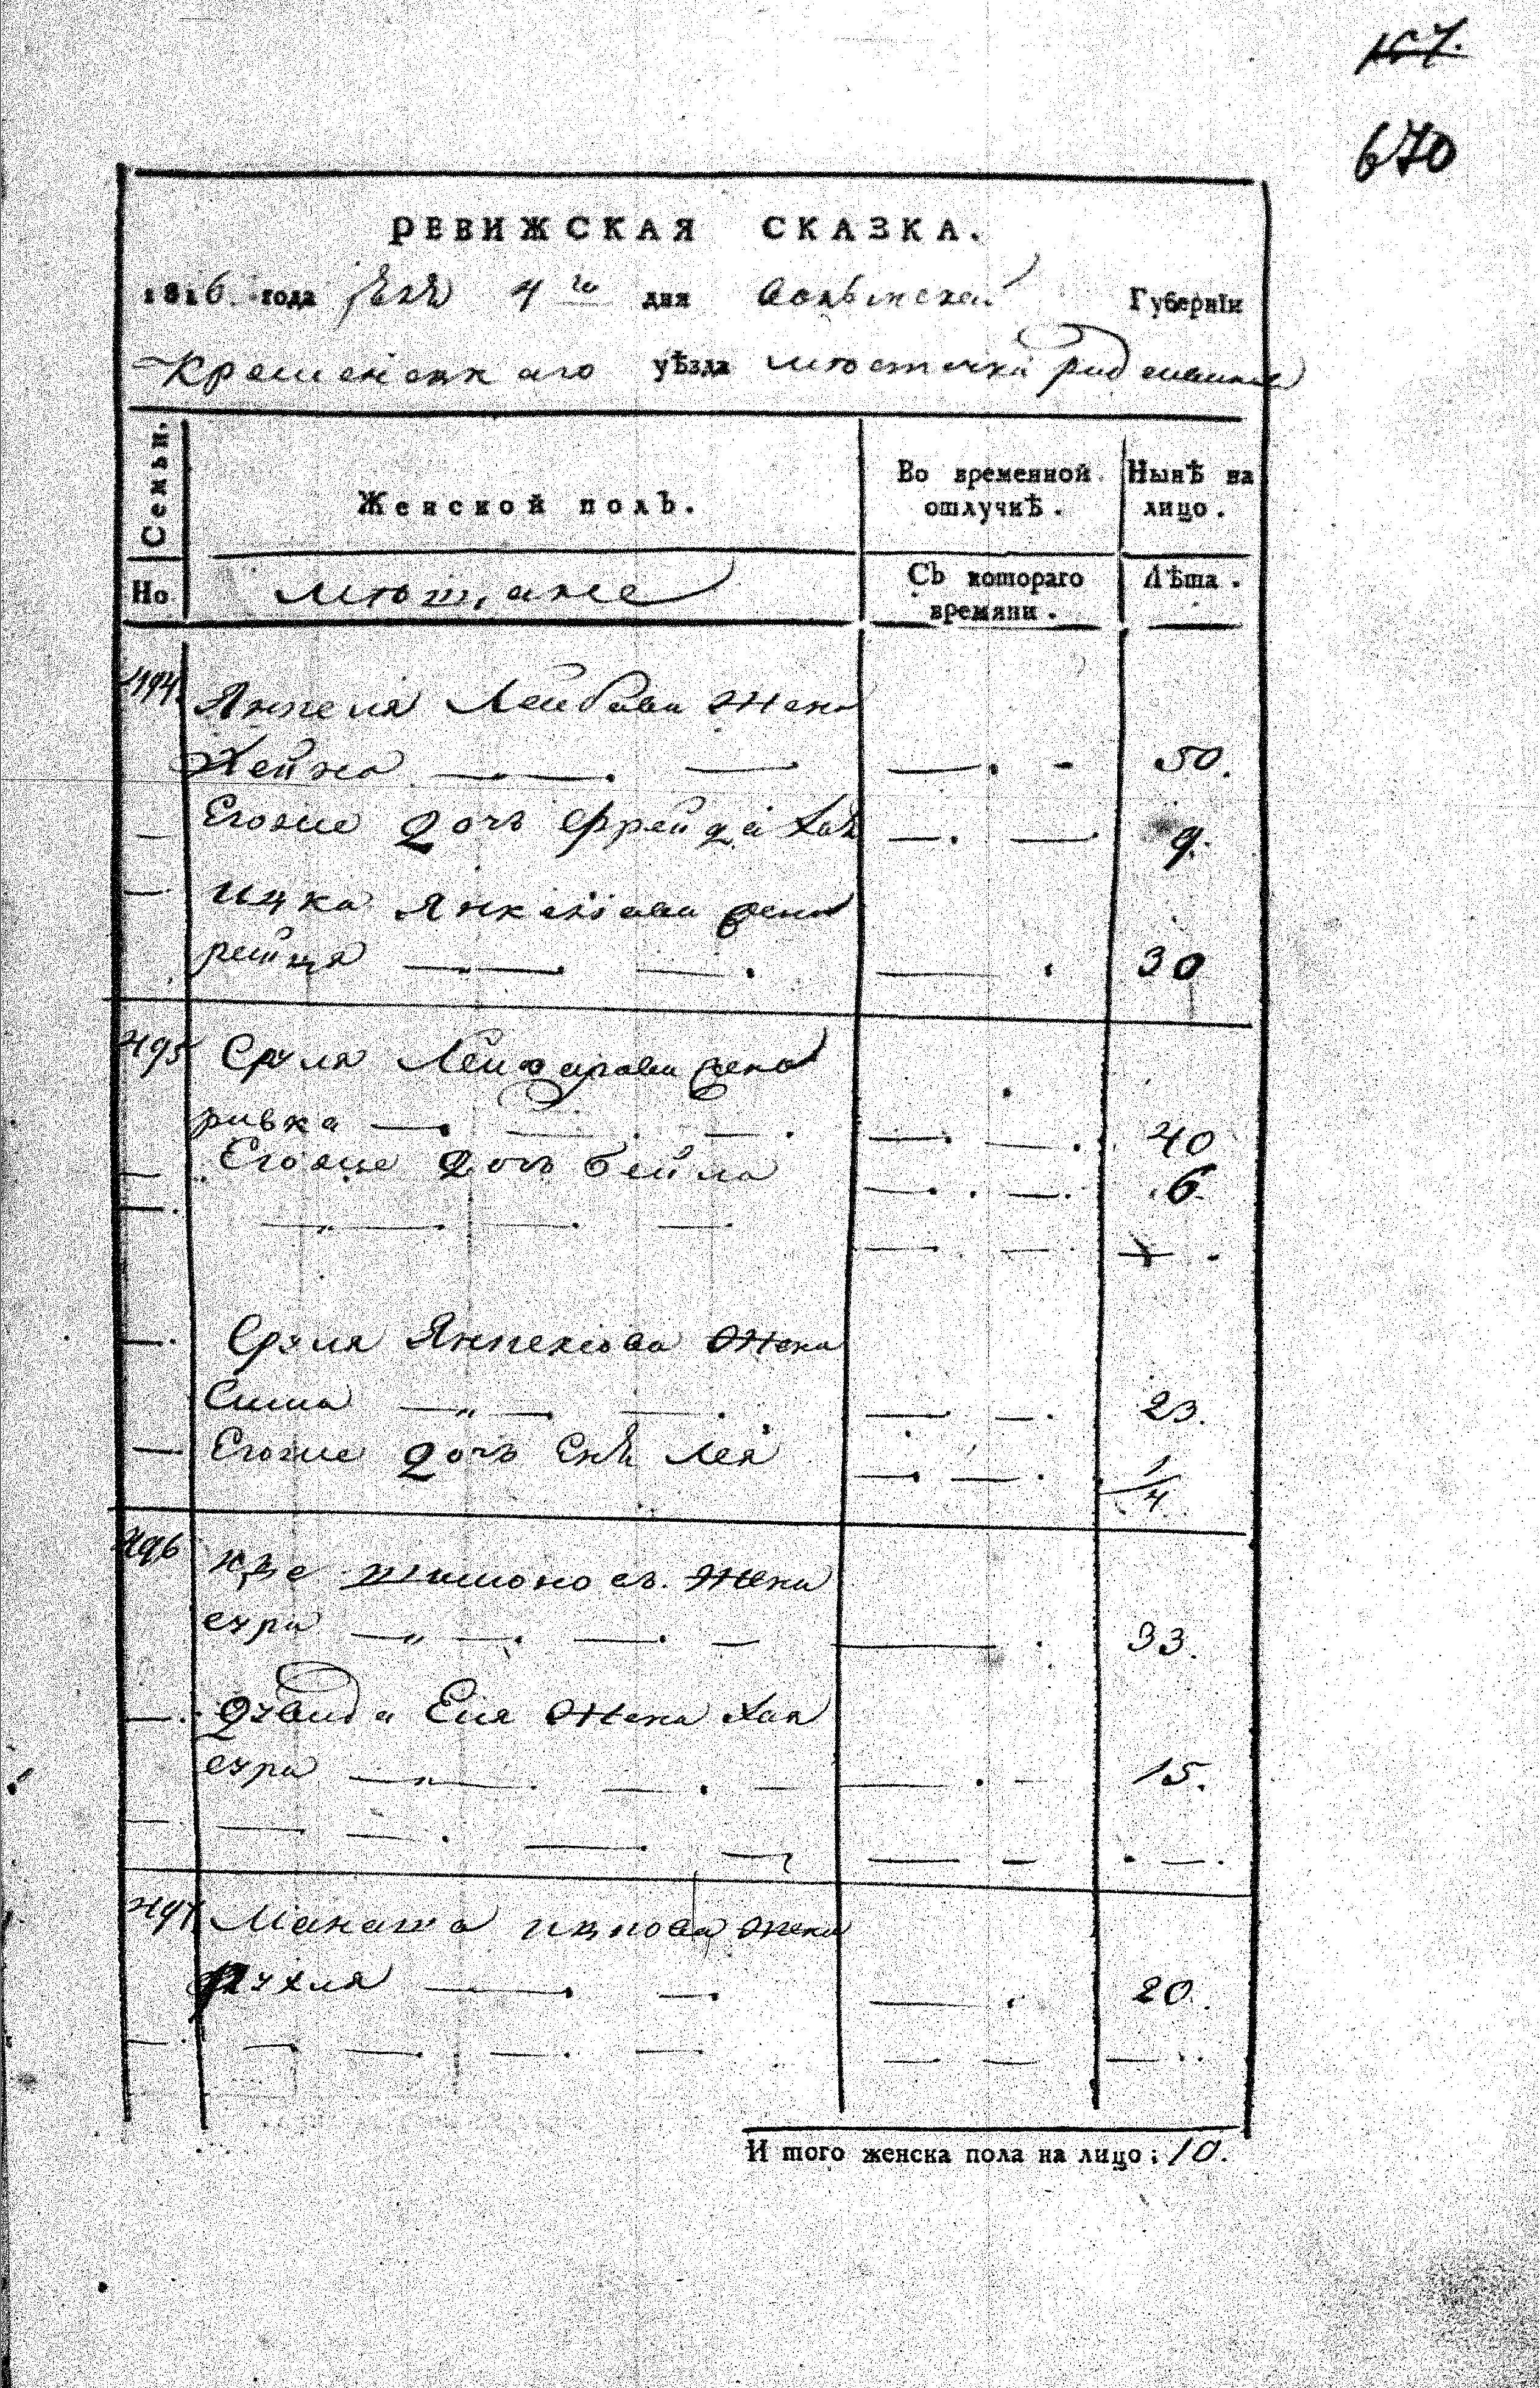 167.
670
РЕВИЖСКАЯ СКАЗКА.
1816. года 4го дня Волынской Губерніи
Кременецкаго уѣзда мѣстечка
Семьи. Женской полъ. Во временной отлучкѣ. Нынѣ на лицо.
Но. мѣщане Съ котораго времяни. Лѣта.
494. Янкеля Лейбова жена
Хейка 50.
Егоже дочь Фрейда Хая 9.
Ицка Янкелева жена
рейця 30
495 Сруля Лейзарова жена
ривка 40
Егоже дочь бейла 6.
Сруля Янкелева жена
Сима 23.
Егоже дочь Лея 1/4
496 жена
сура 33.
жена Хая
сура 15.
497 Манаша ицкова жена
рухля 20.
И того женска пола на лицо: 10.